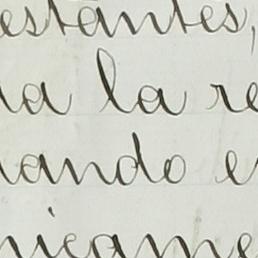 estantes,
da la re
uando e
nicame